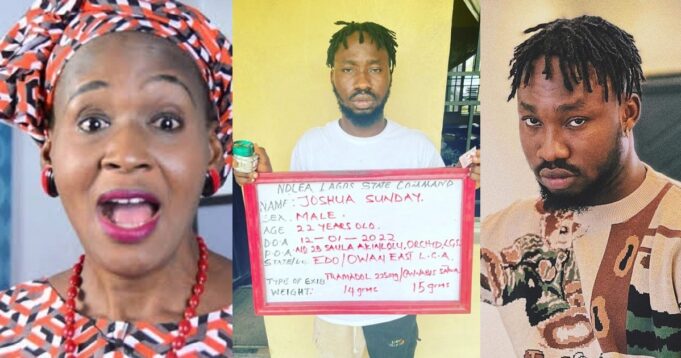 NDLEA LAGOS STATE COMMAND
NAME: JOSHUA SUNDAY.
SEX. MALE.
AGE 22 YEARS OLD.
D.O.A 12-01-2022
P.O.A: NO 2B SAULA AKINLOLU, ORCHYD, LGS
STATE/LG: EDO/OWAN EAST L.G.A.
TYPE OF EXIB TRAMADOL 225mg/CANNABIS
WEIGHT: 14gms 15gms